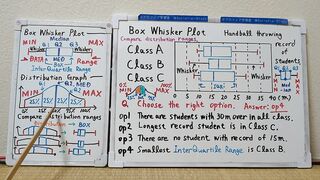 Box Whisker Plot
Median
Q1 Q2 Q3
MIN MAX
Whisker Whisker
DATA MED
BOX
InterQuartile Range
Distribution Graph
MIN Q1 Q2 Q3 MAX
MED
25% 25% 25% 25%
Compare distribution ranges
Distribution BOX
Box Whisker Plot Handball throwing
Compare distribution ranges. record of students
Class A
Class B
Class C
Whisker Whisker
0 5 10 15 20 25 30 35 40 (m)
MIN Q1 Q2 Q3 MAX
Med
Q Choose the right option. Answer: op4
op1 There are students with 30m over in all class.
op2 Longest record student is in Class C.
op3 There are no student with record of 15m.
op4 Smallest InterQuartile Range is Class B.